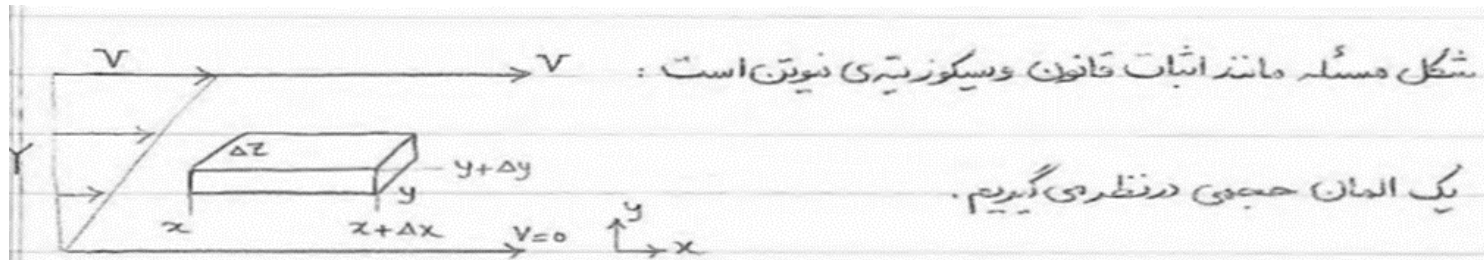 شکل مسئله مانند اثبات قانون ویسکوزیته‌ی نیوتن است :
یک المان حجمی درنظر می‌گیریم.
V
V
Y
ΔZ
y+Δy
y
x
x+Δx
V=0
y
x